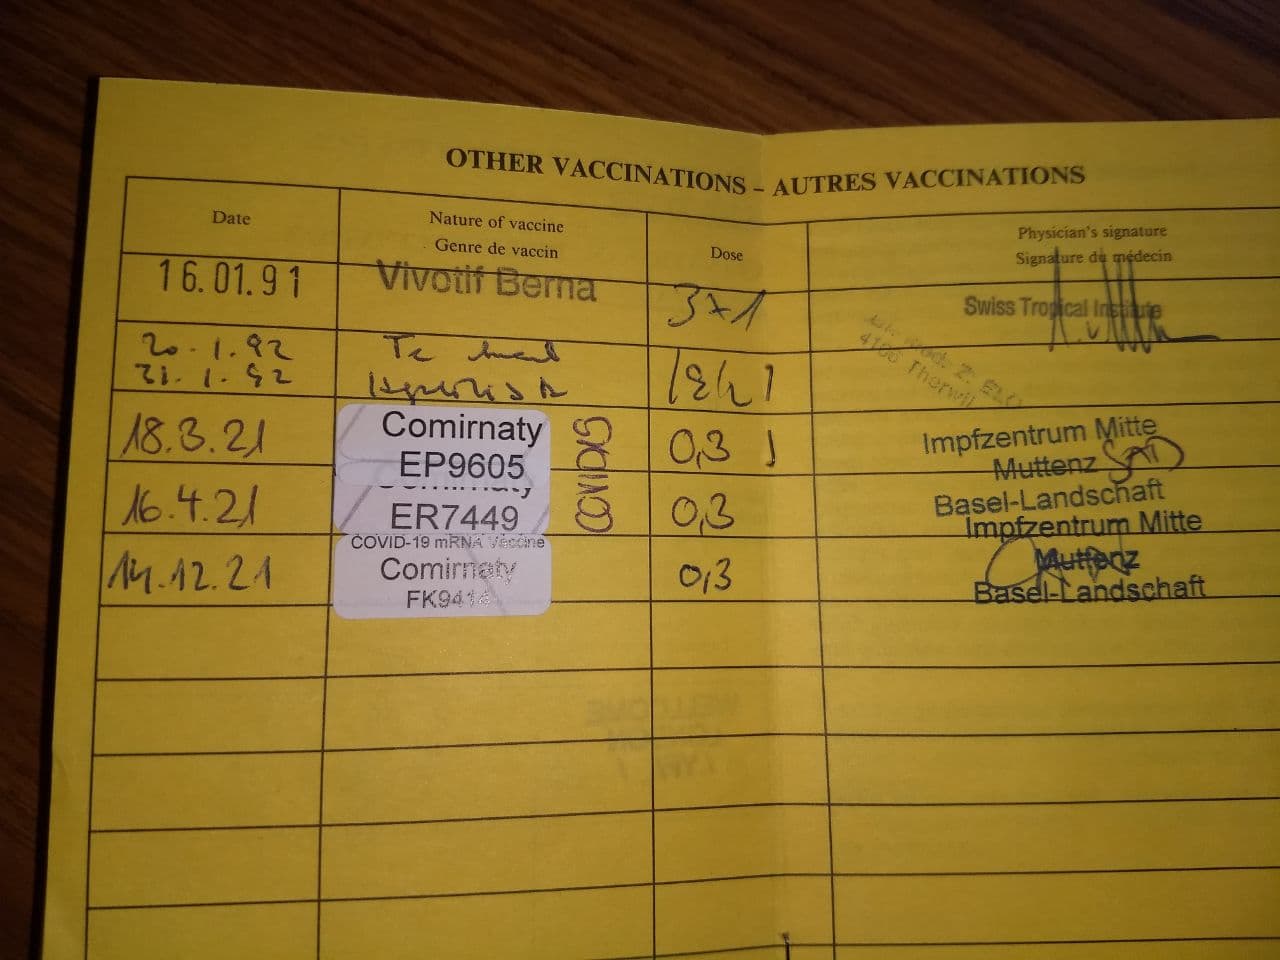 OTHER VACCINATIONS – AUTRES VACCINATIONS
Date
Nature of vaccine
Genre de vaccin
Dose
Physician's signature
Signature du médecin
16.01.91
Vivotif Berna
3x1
Swiss Tropical Institute
20.1.92
Te
31.1.92
4106 Therwil
18.3.21
Comirnaty
EP9605
COVID19
0,3
Impfzentrum Mitte
Muttenz
Basel-Landschaft
16.4.21
ER7449
0,3
Impfzentrum Mitte
Muttenz
Basel-Landschaft
14.12.21
COVID-19 mRNA Vaccine
Comirnaty
FK9414
0,3